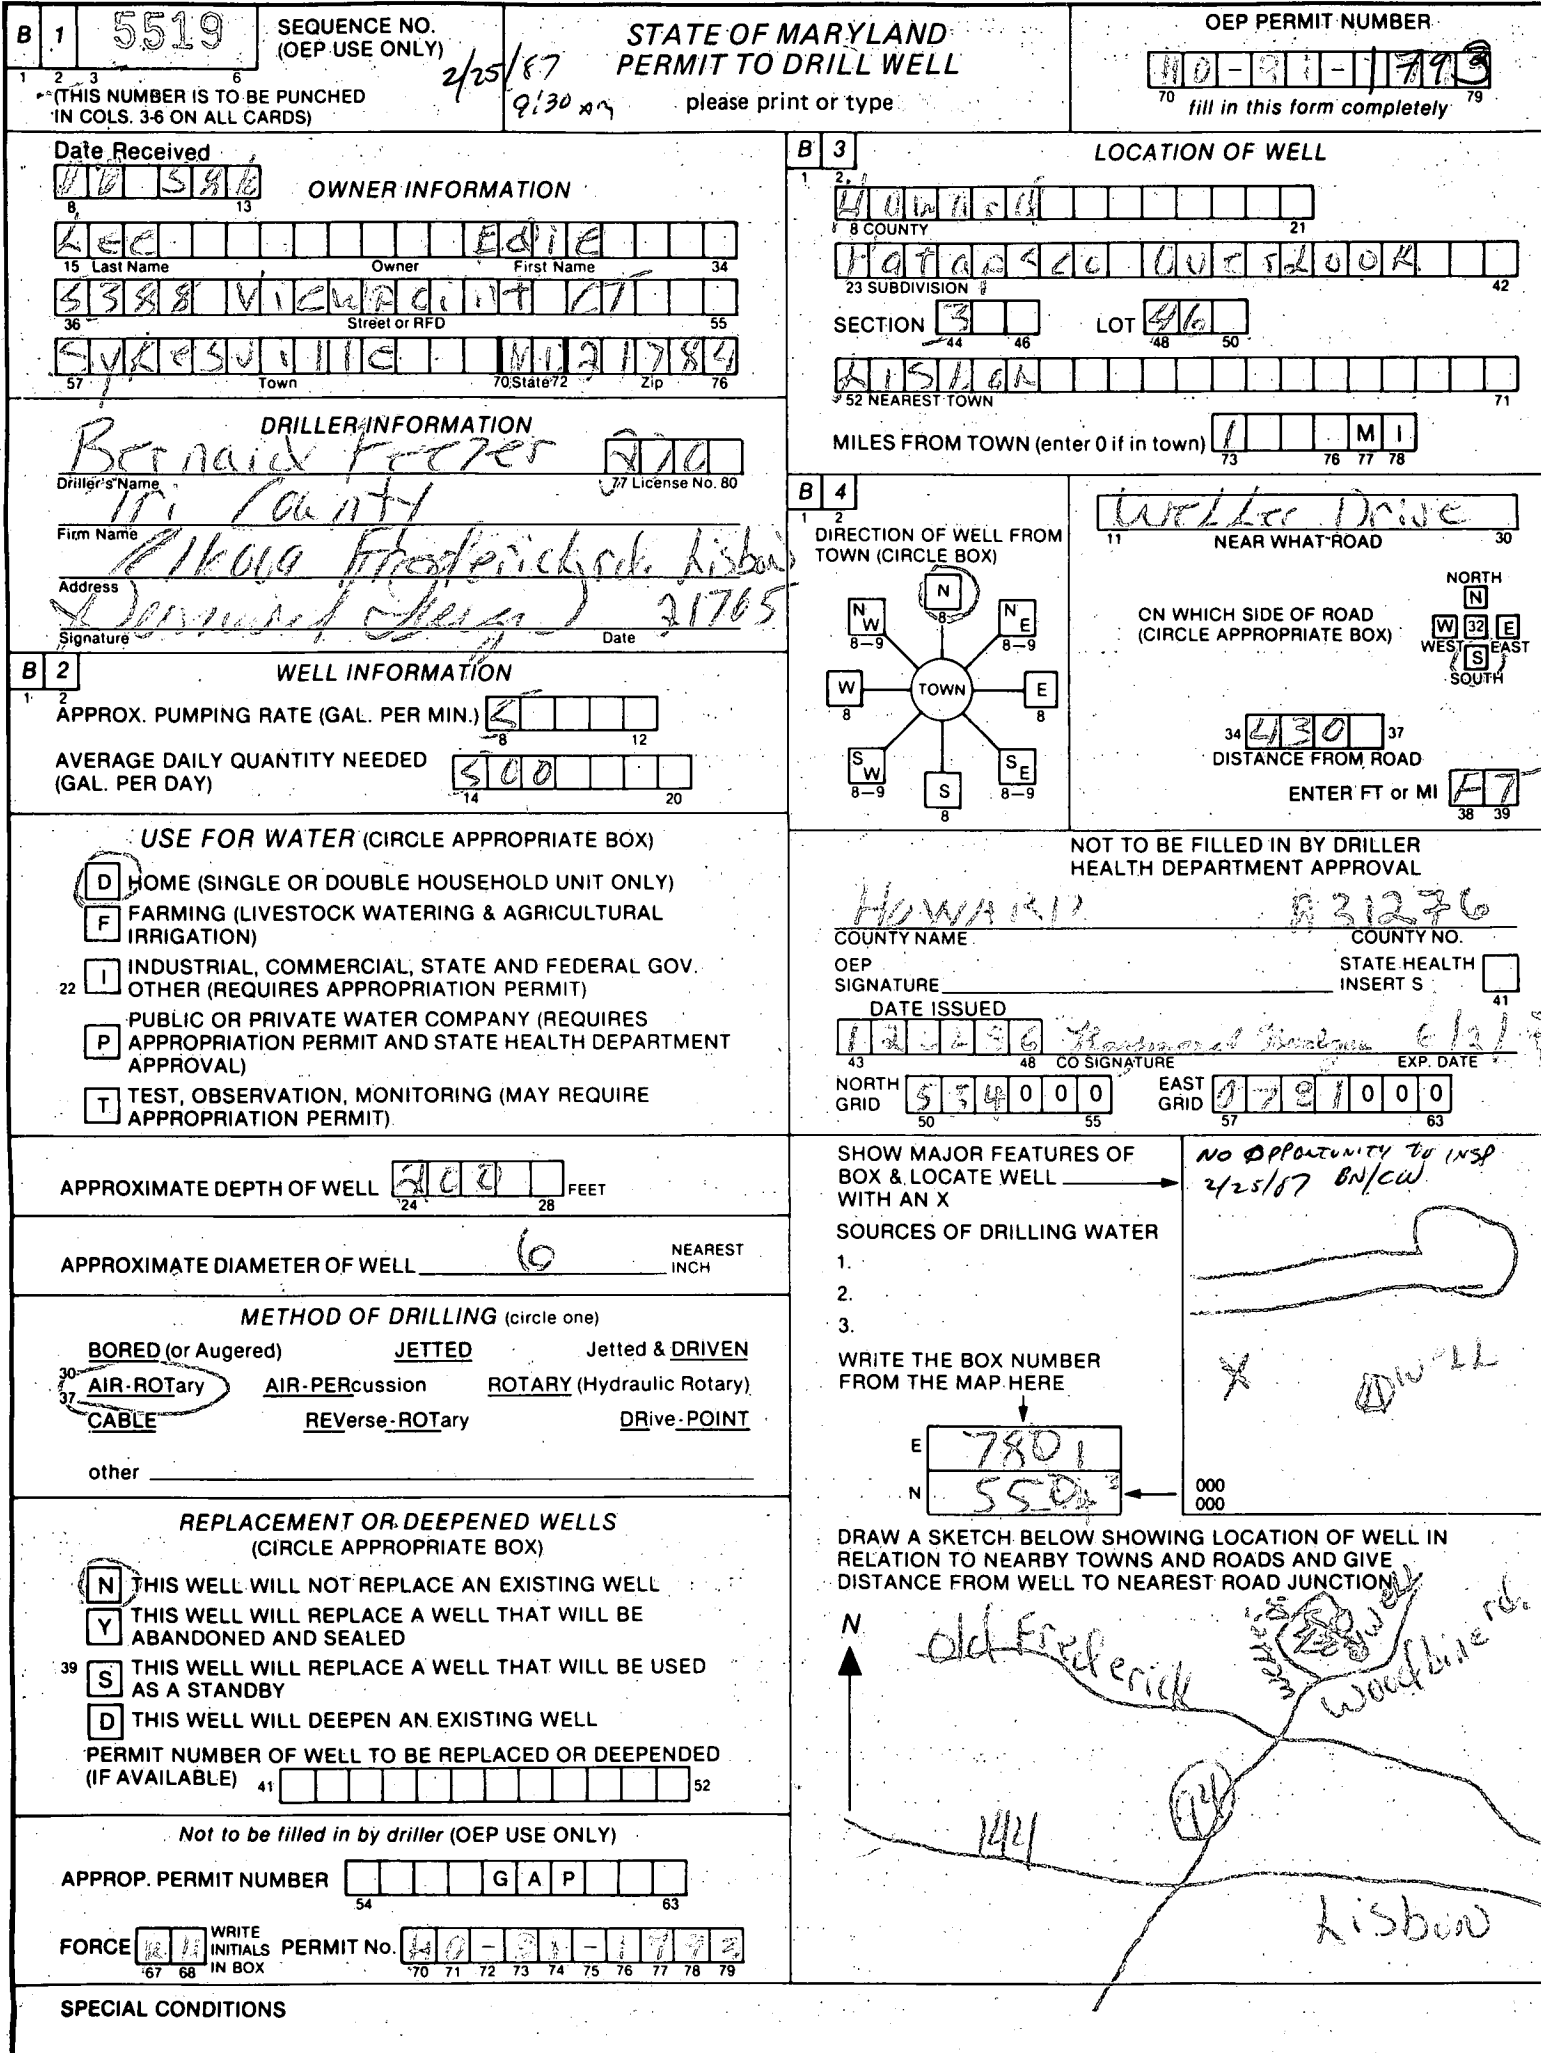 B 1 5519 SEQUENCE NO. (OEP USE ONLY)
1 2 3 6
(THIS NUMBER IS TO BE PUNCHED
IN COLS. 3-6 ON ALL CARDS)
2/25/87
9:30 AM
STATE OF MARYLAND
PERMIT TO DRILL WELL
please print or type
OEP PERMIT NUMBER
1793
70 79
fill in this form completely
Date Received
8 13
OWNER INFORMATION
Lee Edie
15 Last Name Owner First Name 34
5388 Viewpoint CT
36 Street or RFD 55
Sykesville 21784
57 Town 70 State 72 Zip 76
DRILLER INFORMATION
Bernard
Driller's Name 77 License No. 80
Tri County
Firm Name
Frederick rd. Lisbon
Address
21765
Signature Date
B 2 WELL INFORMATION
1 2
APPROX. PUMPING RATE (GAL. PER MIN.) 5
8 12
AVERAGE DAILY QUANTITY NEEDED
(GAL. PER DAY) 500
14 20
USE FOR WATER (CIRCLE APPROPRIATE BOX)
D HOME (SINGLE OR DOUBLE HOUSEHOLD UNIT ONLY)
F FARMING (LIVESTOCK WATERING & AGRICULTURAL
IRRIGATION)
22 I INDUSTRIAL, COMMERCIAL, STATE AND FEDERAL GOV.
OTHER (REQUIRES APPROPRIATION PERMIT)
P PUBLIC OR PRIVATE WATER COMPANY (REQUIRES
APPROPRIATION PERMIT AND STATE HEALTH DEPARTMENT
APPROVAL)
T TEST, OBSERVATION, MONITORING (MAY REQUIRE
APPROPRIATION PERMIT)
APPROXIMATE DEPTH OF WELL 200 FEET
24 28
APPROXIMATE DIAMETER OF WELL 6 NEAREST
INCH
METHOD OF DRILLING (circle one)
BORED (or Augered) JETTED Jetted & DRIVEN
30 AIR-ROTary AIR-PERcussion ROTARY (Hydraulic Rotary)
37 CABLE REVerse-ROTary DRive-POINT
other
REPLACEMENT OR DEEPENED WELLS
(CIRCLE APPROPRIATE BOX)
N THIS WELL WILL NOT REPLACE AN EXISTING WELL
Y THIS WELL WILL REPLACE A WELL THAT WILL BE
ABANDONED AND SEALED
39 S THIS WELL WILL REPLACE A WELL THAT WILL BE USED
AS A STANDBY
D THIS WELL WILL DEEPEN AN EXISTING WELL
PERMIT NUMBER OF WELL TO BE REPLACED OR DEEPENDED
(IF AVAILABLE) 41 52
Not to be filled in by driller (OEP USE ONLY)
APPROP. PERMIT NUMBER G A P
54 63
FORCE WRITE INITIALS IN BOX PERMIT No.
67 68 70 71 72 73 74 75 76 77 78 79
SPECIAL CONDITIONS
B 3 LOCATION OF WELL
1 2
Howard
8 COUNTY 21
Patapsco Overlook
23 SUBDIVISION 42
SECTION 3 LOT 46
44 46 48 50
Lisbon
52 NEAREST TOWN 71
MILES FROM TOWN (enter 0 if in town) 1 M I
73 76 77 78
B 4
1 2
DIRECTION OF WELL FROM
TOWN (CIRCLE BOX)
N
8
N W N E
8-9 8-9
W TOWN E
8 8
S W S E
8-9 S 8-9
8
Weller Drive
11 NEAR WHAT ROAD 30
ON WHICH SIDE OF ROAD
(CIRCLE APPROPRIATE BOX)
NORTH
N
W 32 E
WEST EAST
S
SOUTH
34 430 37
DISTANCE FROM ROAD
ENTER FT or MI FT
38 39
NOT TO BE FILLED IN BY DRILLER
HEALTH DEPARTMENT APPROVAL
HOWARD 31276
COUNTY NAME COUNTY NO.
OEP
SIGNATURE
STATE HEALTH
INSERT S
41
DATE ISSUED
43 48 CO SIGNATURE EXP. DATE
NORTH
GRID 000
50 55
EAST
GRID 000
57 63
SHOW MAJOR FEATURES OF
BOX & LOCATE WELL
WITH AN X
NO OPPORTUNITY TO INSP
2/25/87 BN/CW
SOURCES OF DRILLING WATER
1.
2.
3.
WELL
X
WRITE THE BOX NUMBER
FROM THE MAP HERE
E 7801
N
000
000
DRAW A SKETCH BELOW SHOWING LOCATION OF WELL IN
RELATION TO NEARBY TOWNS AND ROADS AND GIVE
DISTANCE FROM WELL TO NEAREST ROAD JUNCTION
N
Old Frederick
well
Woodbine rd.
94
144
Lisbon